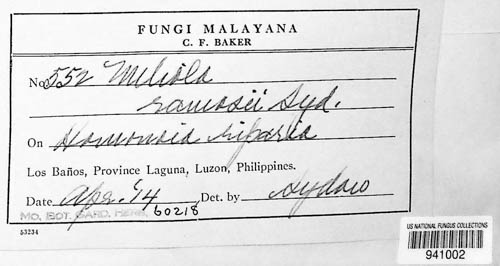 FUNGI MALAYANA
C. F. BAKER
No. 552 Meliola
ramosii Syd.
On Homonoia riparia
Los Baños, Province Laguna, Luzon, Philippines.
Date Apr. '14 Det. by Sydow
MO. BOT. GARD. HERB. 60218
53234
US NATIONAL FUNGUS COLLECTIONS
941002